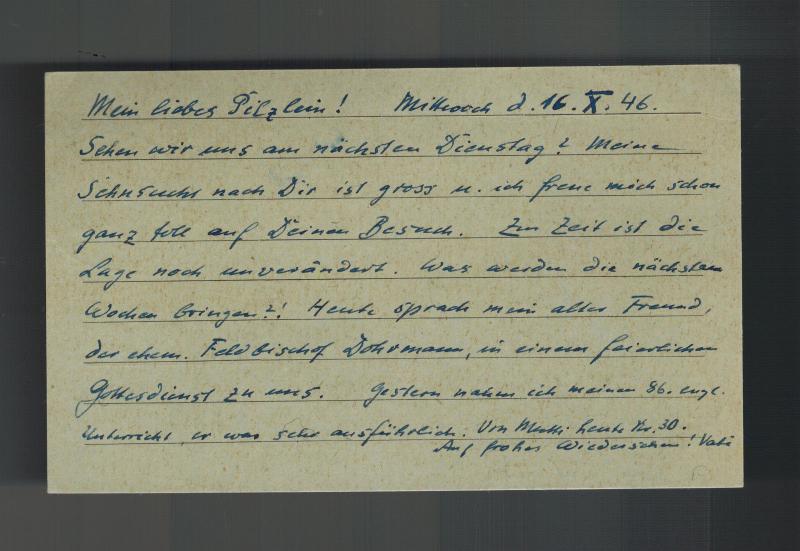 Mein liebes Pilzlein! Mittwoch d. 16. X. 46.
Sehen wir uns am nächsten Dienstag? Meine
Sehnsucht nach Dir ist gross u. ich freue mich schon
ganz toll auf Deinen Besuch. Zur Zeit ist die
Lage noch unverändert. Was werden die nächsten
Wochen bringen?! Heute sprach mein alter Freund,
der ehem. Feldbischof Dohrmann, in einem feierlichen
Gottesdienst zu uns. Gestern nahm ich meinen 86. engl.
Unterricht er war sehr ausführlich. Von Mutti heute Nr. 30.
Auf frohes Wiedersehen! Vati